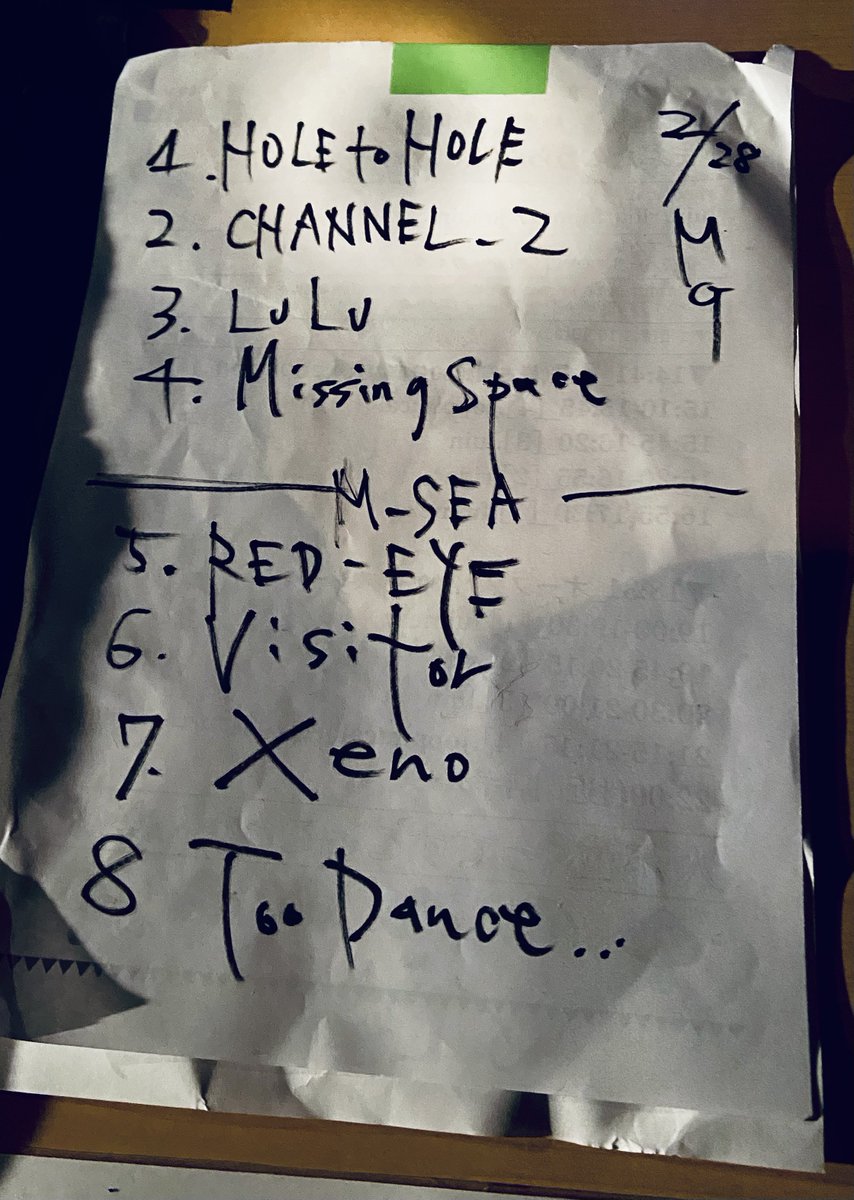 1. HOLE to HOLE
2. CHANNEL-2
3. LuLu
4. Missing Space
M-SEA
5. RED-EYE
6. Visitor
7. Xeno
8 Too Dance...
2/28
M
9